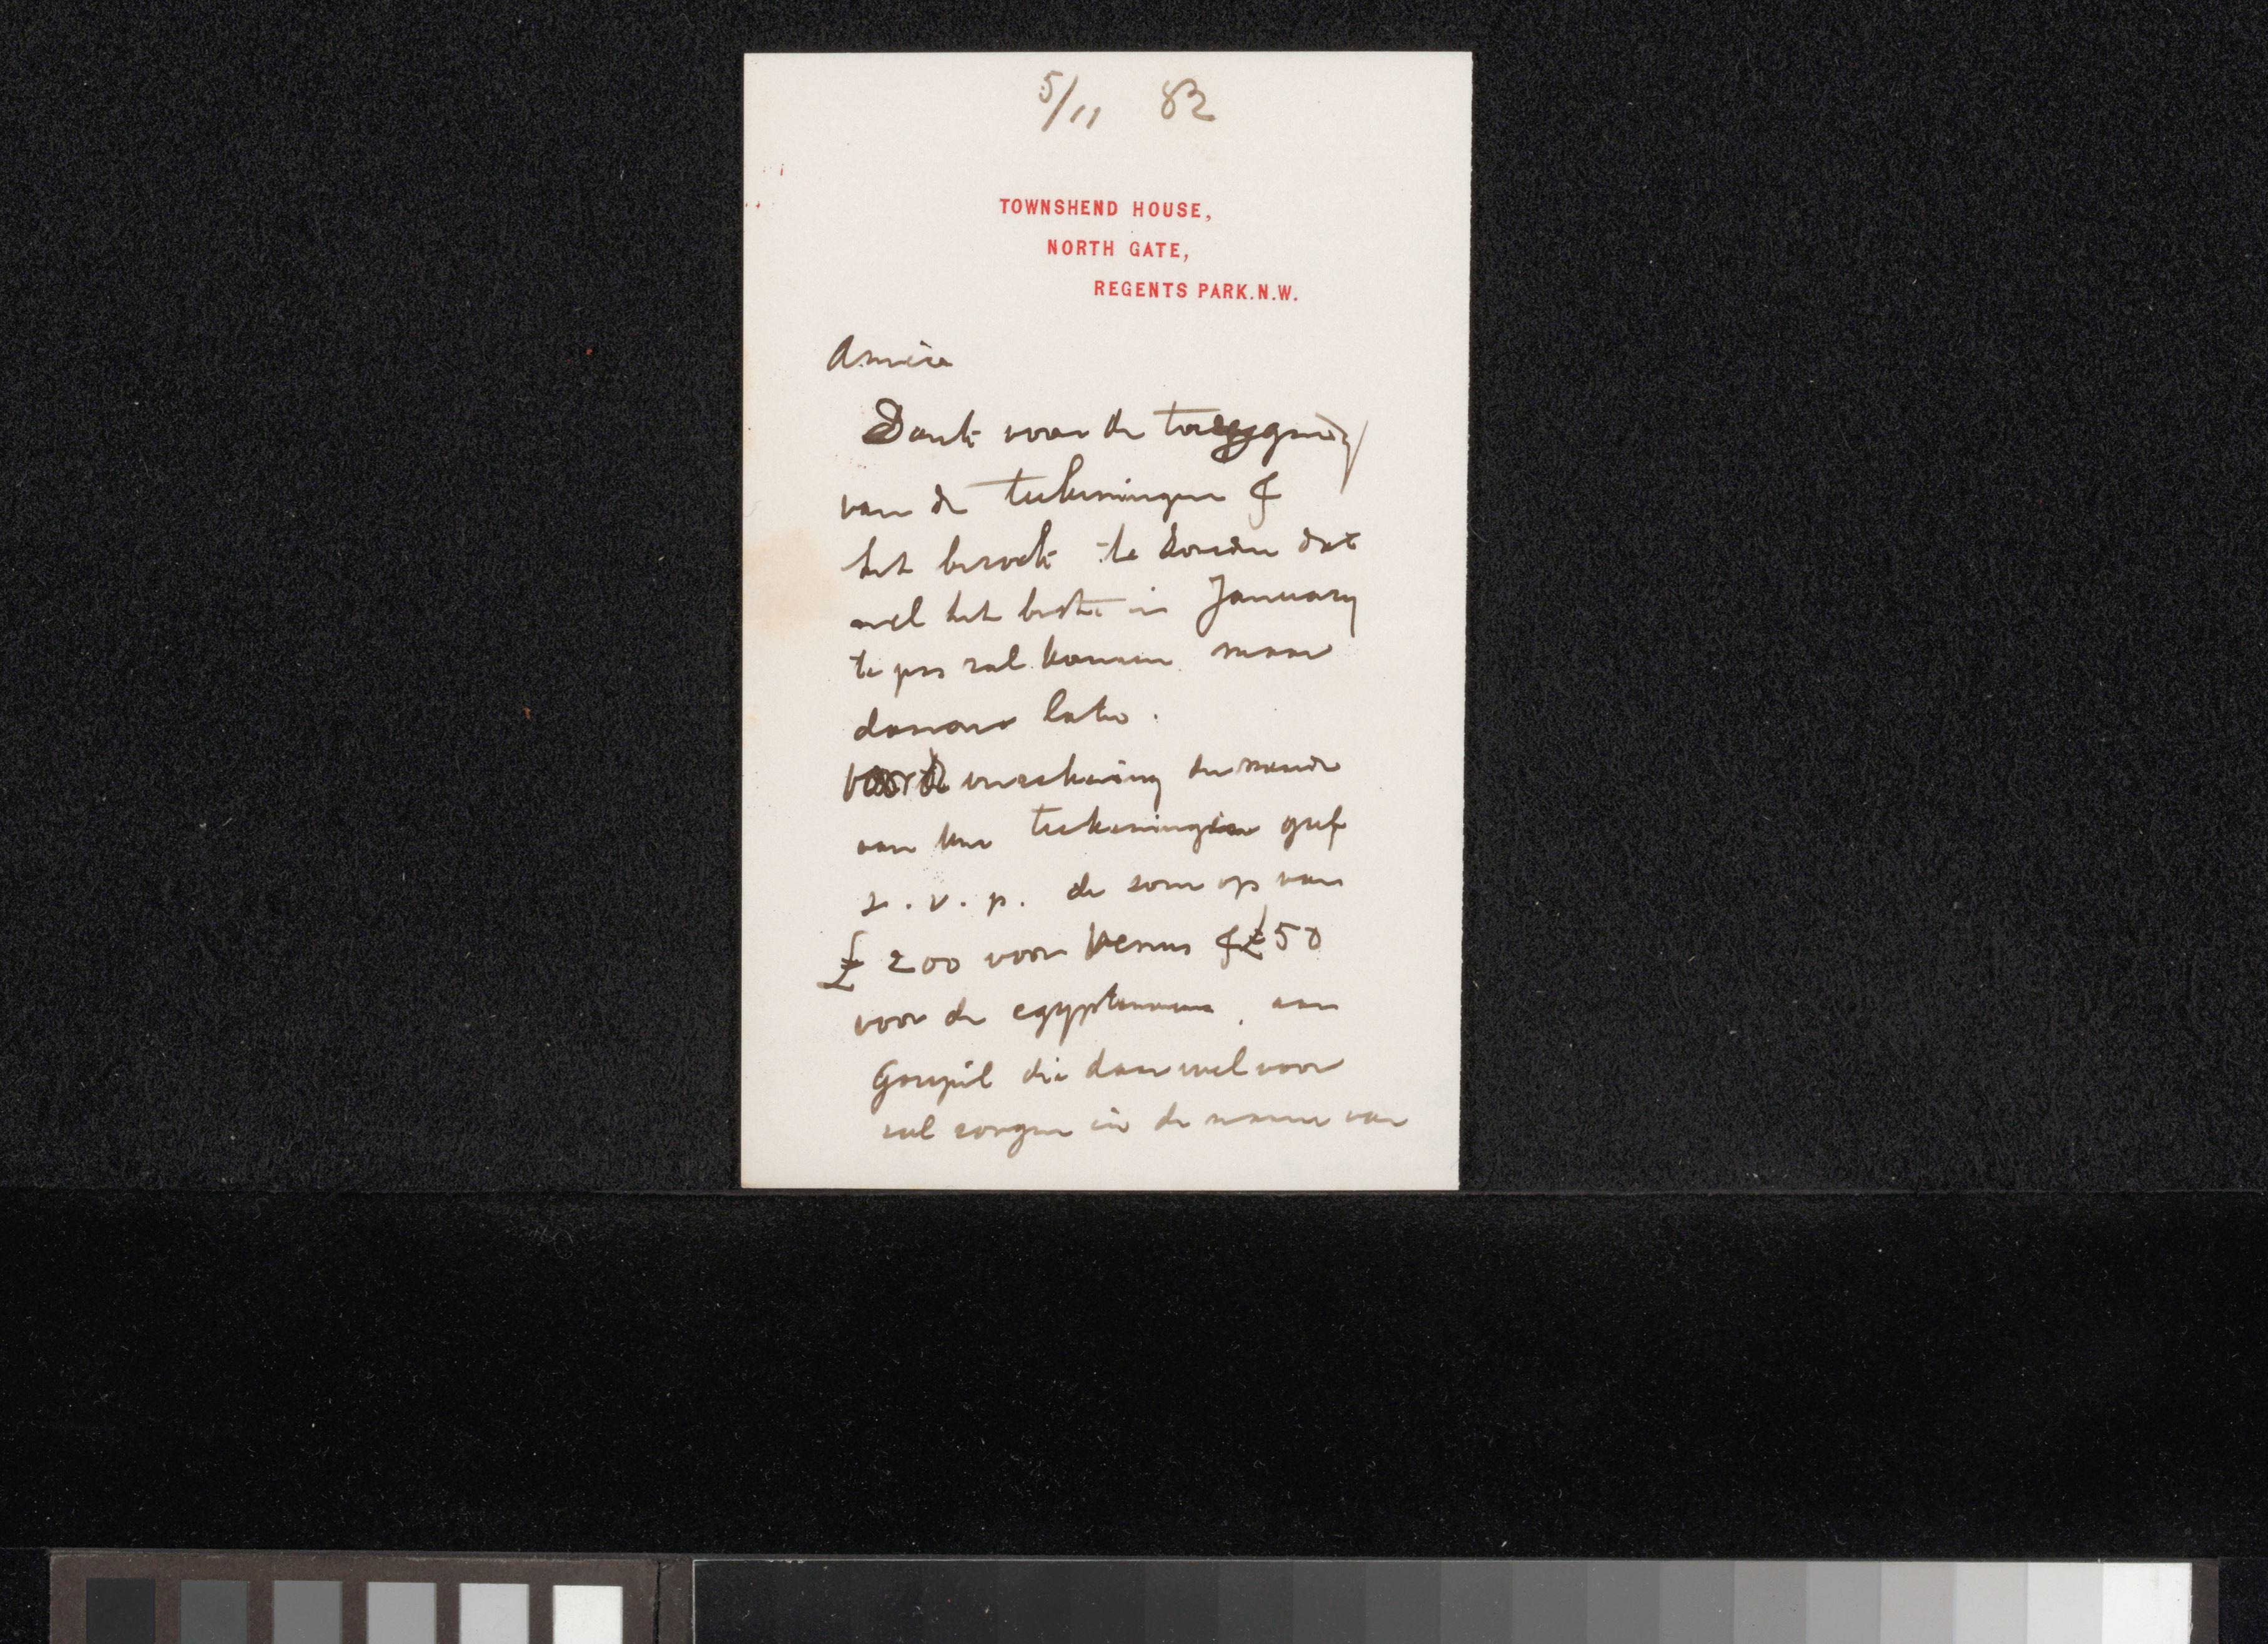 5/11 82
TOWNSHEND HOUSE,
NORTH GATE,
REGENTS PARK.N.W.
Amice
Dank voor de toezegging
van de teekeningen &
het bezoek te houden dat
wel het beste in January
te pas zal komen maar
daarover later.
voor de verzekering der waarde
van teekeningen geef
s. v. p. de som op van
£ 200 voor Venus & £ 50
voor de egyptenaren, aan
Goupil die daar wel voor
zal zorgen in de name van